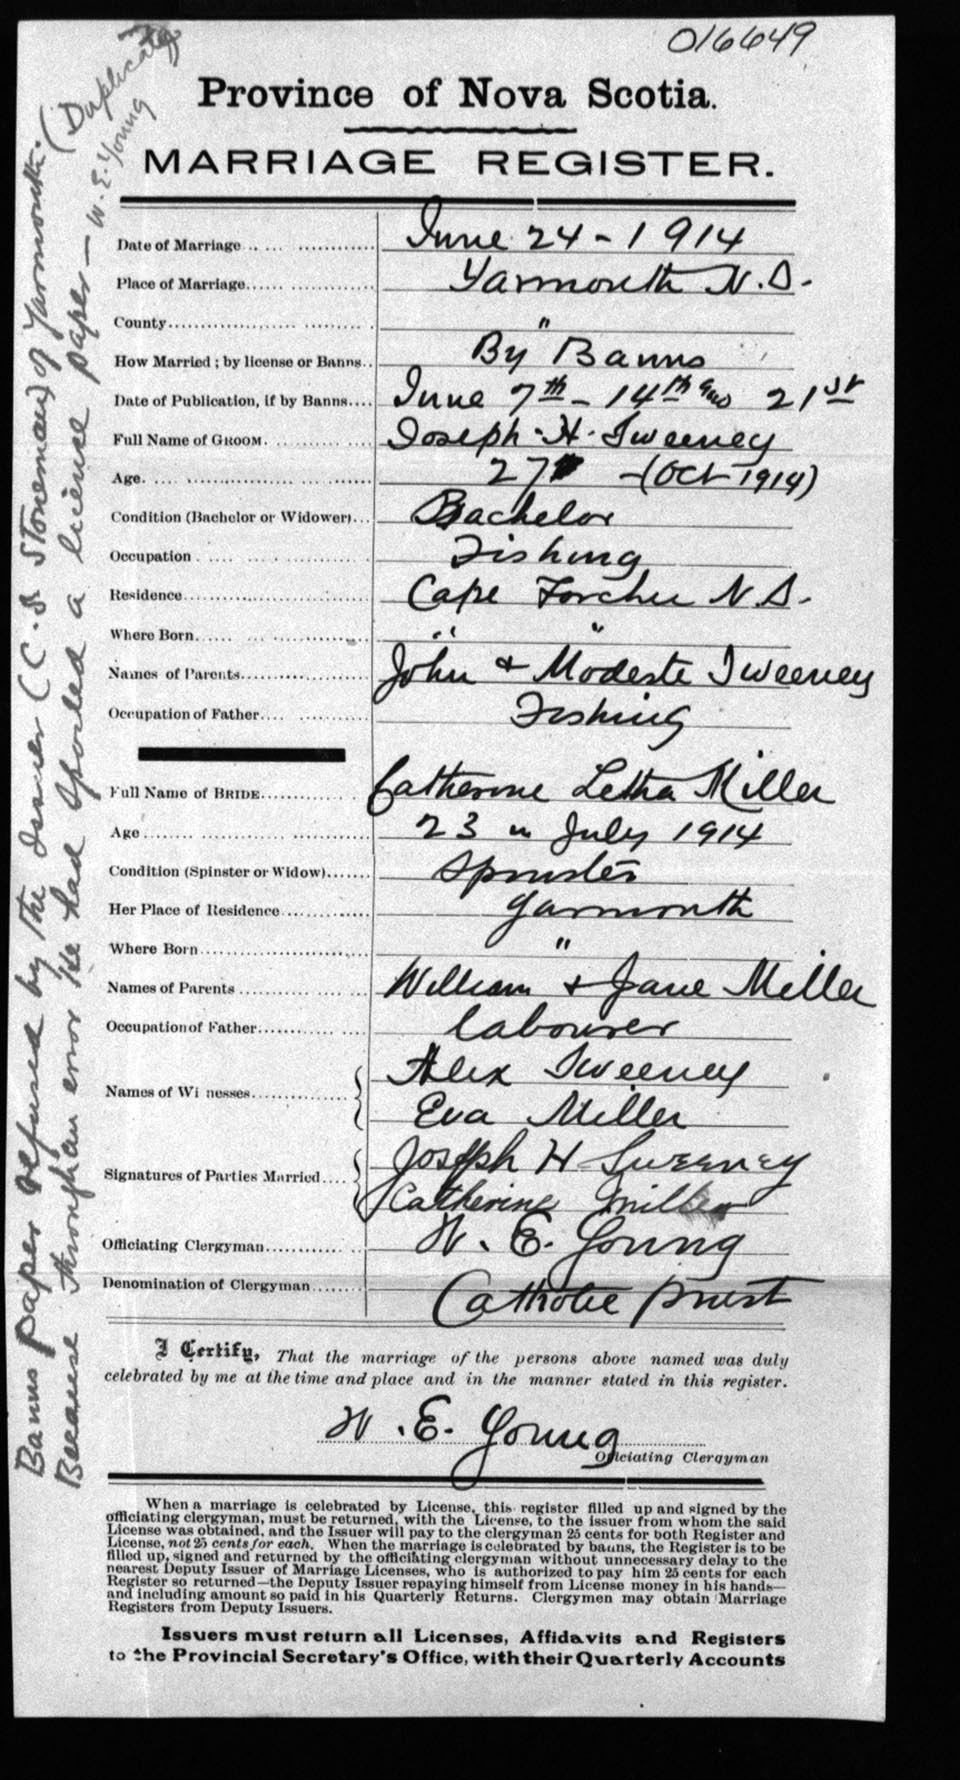 016649
Province of Nova Scotia.
MARRIAGE REGISTER.
Date of Marriage June 24 - 1914
Place of Marriage Yarmouth N.S.
County "
How Married; by license or Banns.. By Banns
Date of Publication, if by Banns.... June 7th - 14th and 21st
Full Name of GROOM. Joseph H. Sweeney
Age. 27 - (Oct 1914)
Condition (Bachelor or Widower)... Bachelor
Occupation Fishing
Residence Cape Forchu N.S.
Where Born " "
Names of Parents John + Modeste Sweeney
Occupation of Father Fishing
Full Name of BRIDE Catherine Letha Miller
Age 23 in July 1914
Condition (Spinster or Widow) Spinster
Her Place of Residence Yarmouth
Where Born "
Names of Parents William + Jane Miller
Occupation of Father labourer
Names of Wi nesses Alex Sweeney
Eva Miller
Signatures of Parties Married Joseph H Sweeney
Catherine Miller
Officiating Clergyman W. E. Young
Denomination of Clergyman Catholic priest
I Certify, That the marriage of the persons above named was duly
celebrated by me at the time and place and in the manner stated in this register.
W. E. Young
Officiating Clergyman
When a marriage is celebrated by License, this register filled up and signed by the
officiating clergyman, must be returned, with the License, to the issuer from whom the said
License was obtained, and the Issuer will pay to the clergyman 25 cents for both Register and
License, not 25 cents for each. When the marriage is celebrated by banns, the Register is to be
filled up, signed and returned by the officiating clergyman without unnecessary delay to the
nearest Deputy Issuer of Marriage Licenses, who is authorized to pay him 25 cents for each
Register so returned—the Deputy Issuer repaying himself from License money in his hands—
and including amount so paid in his Quarterly Returns. Clergymen may obtain Marriage
Registers from Deputy Issuers.
Issuers must return all Licenses, Affidavits and Registers
to the Provincial Secretary's Office, with their Quarterly Accounts
Banns paper refused by the Issuer (C. S Stoneman) of Yarmouth. (Duplicate)
Because through an error He had spoiled a license paper — W. E. Young